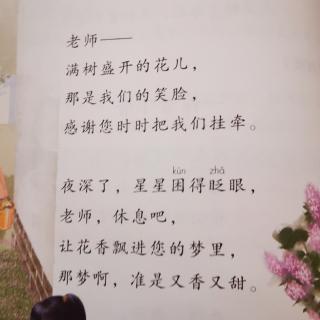 老师——
满树盛开的花儿，
那是我们的笑脸，
感谢您时时把我们挂牵。
kùn zhǎ
夜深了，星星困得眨眼，
老师，休息吧，
让花香飘进您的梦里，
那梦啊，准是又香又甜。